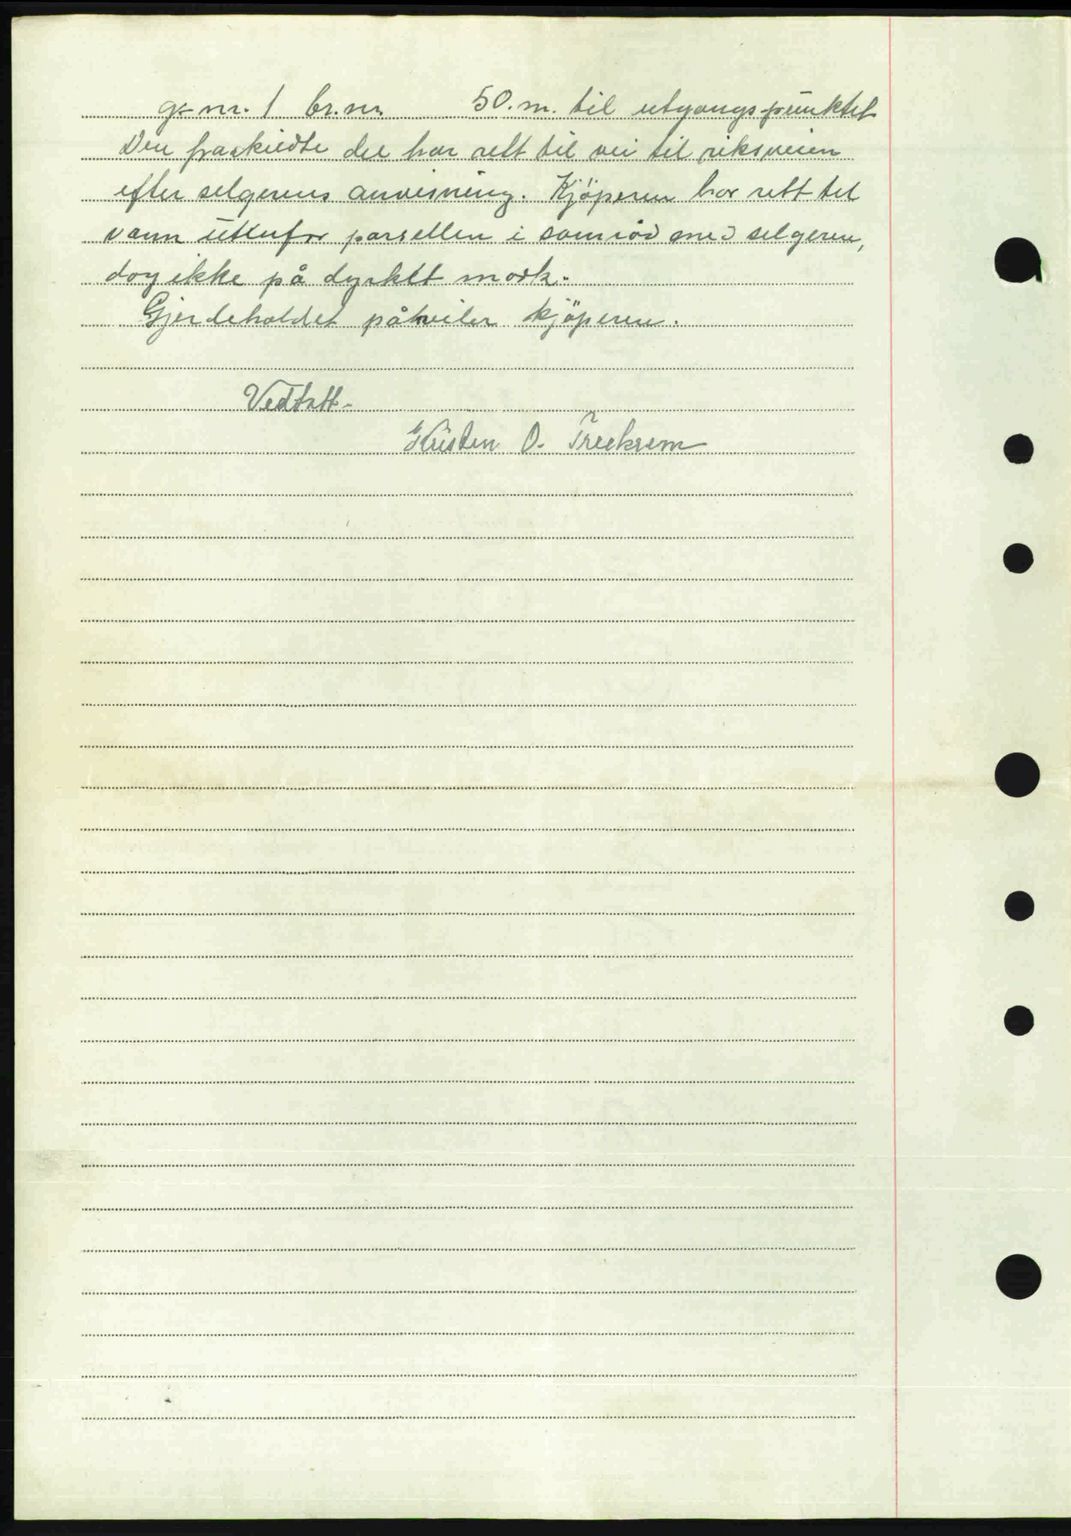 gr nr. 1 br.nr. 50.m. til utgangspunktet
Den fraskildte del har rett til vei til riksveien
efter selgerens anvisning. Kjöperen har rett til
vann utenfor parsellen i samråd med selgeren,
dog ikke på dyrktt mark.
Gjerdeholdet påhviler kjöperen.
Vedtatt.
Kristen O.